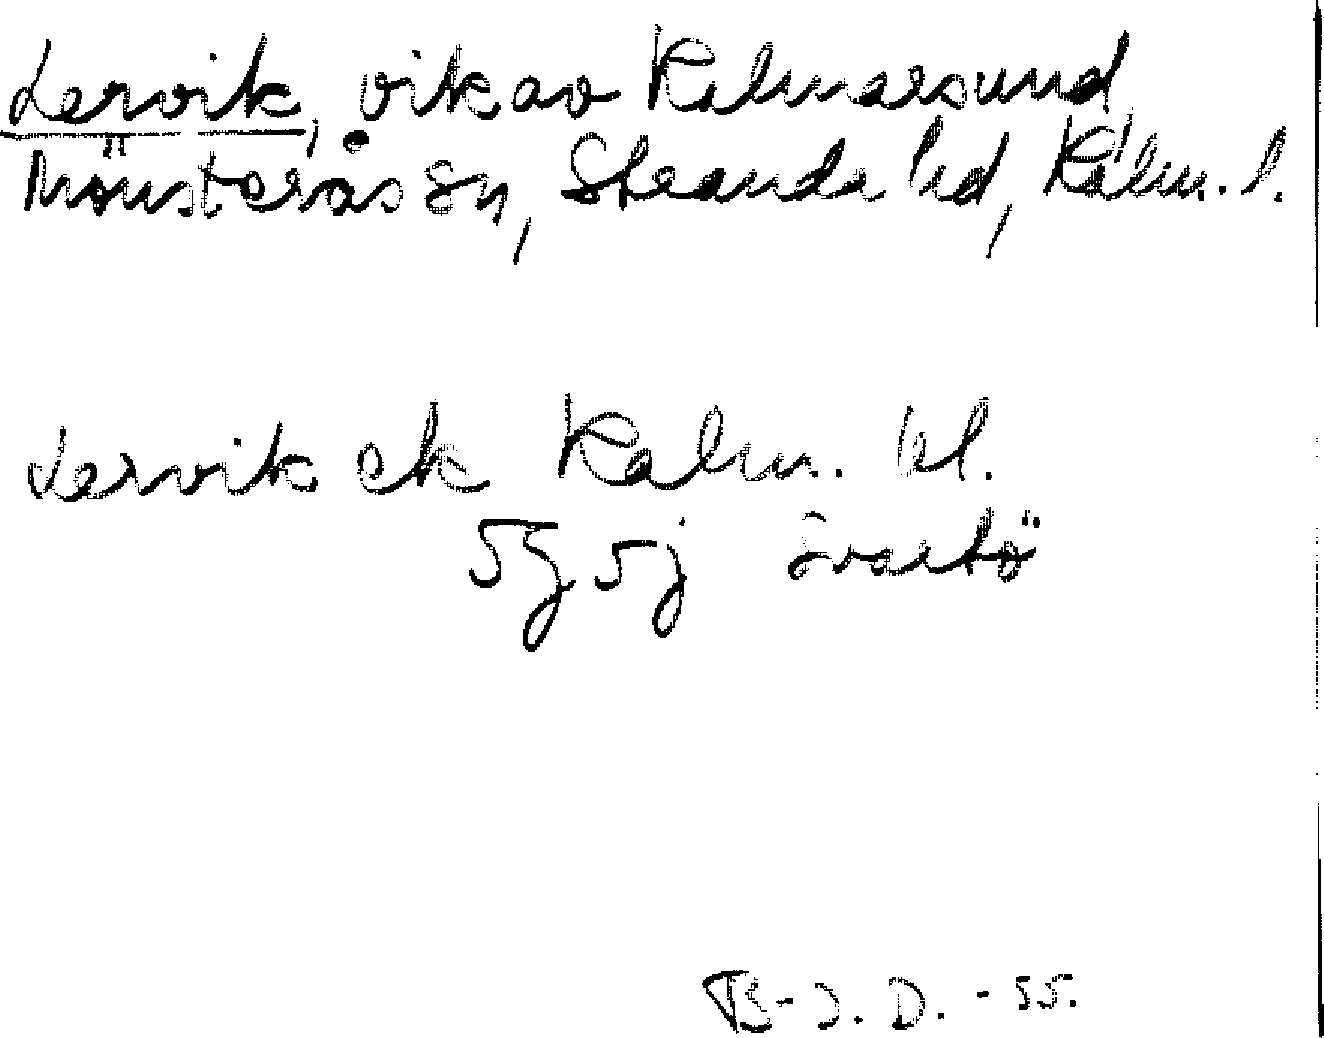 Lervik, vik av Kalmarsund,
Mönsterås sn, Stranda hd, Kalm. l.
Lervik ek Kalm. bl.
5g 5j Svartö
B-J. D. -55.